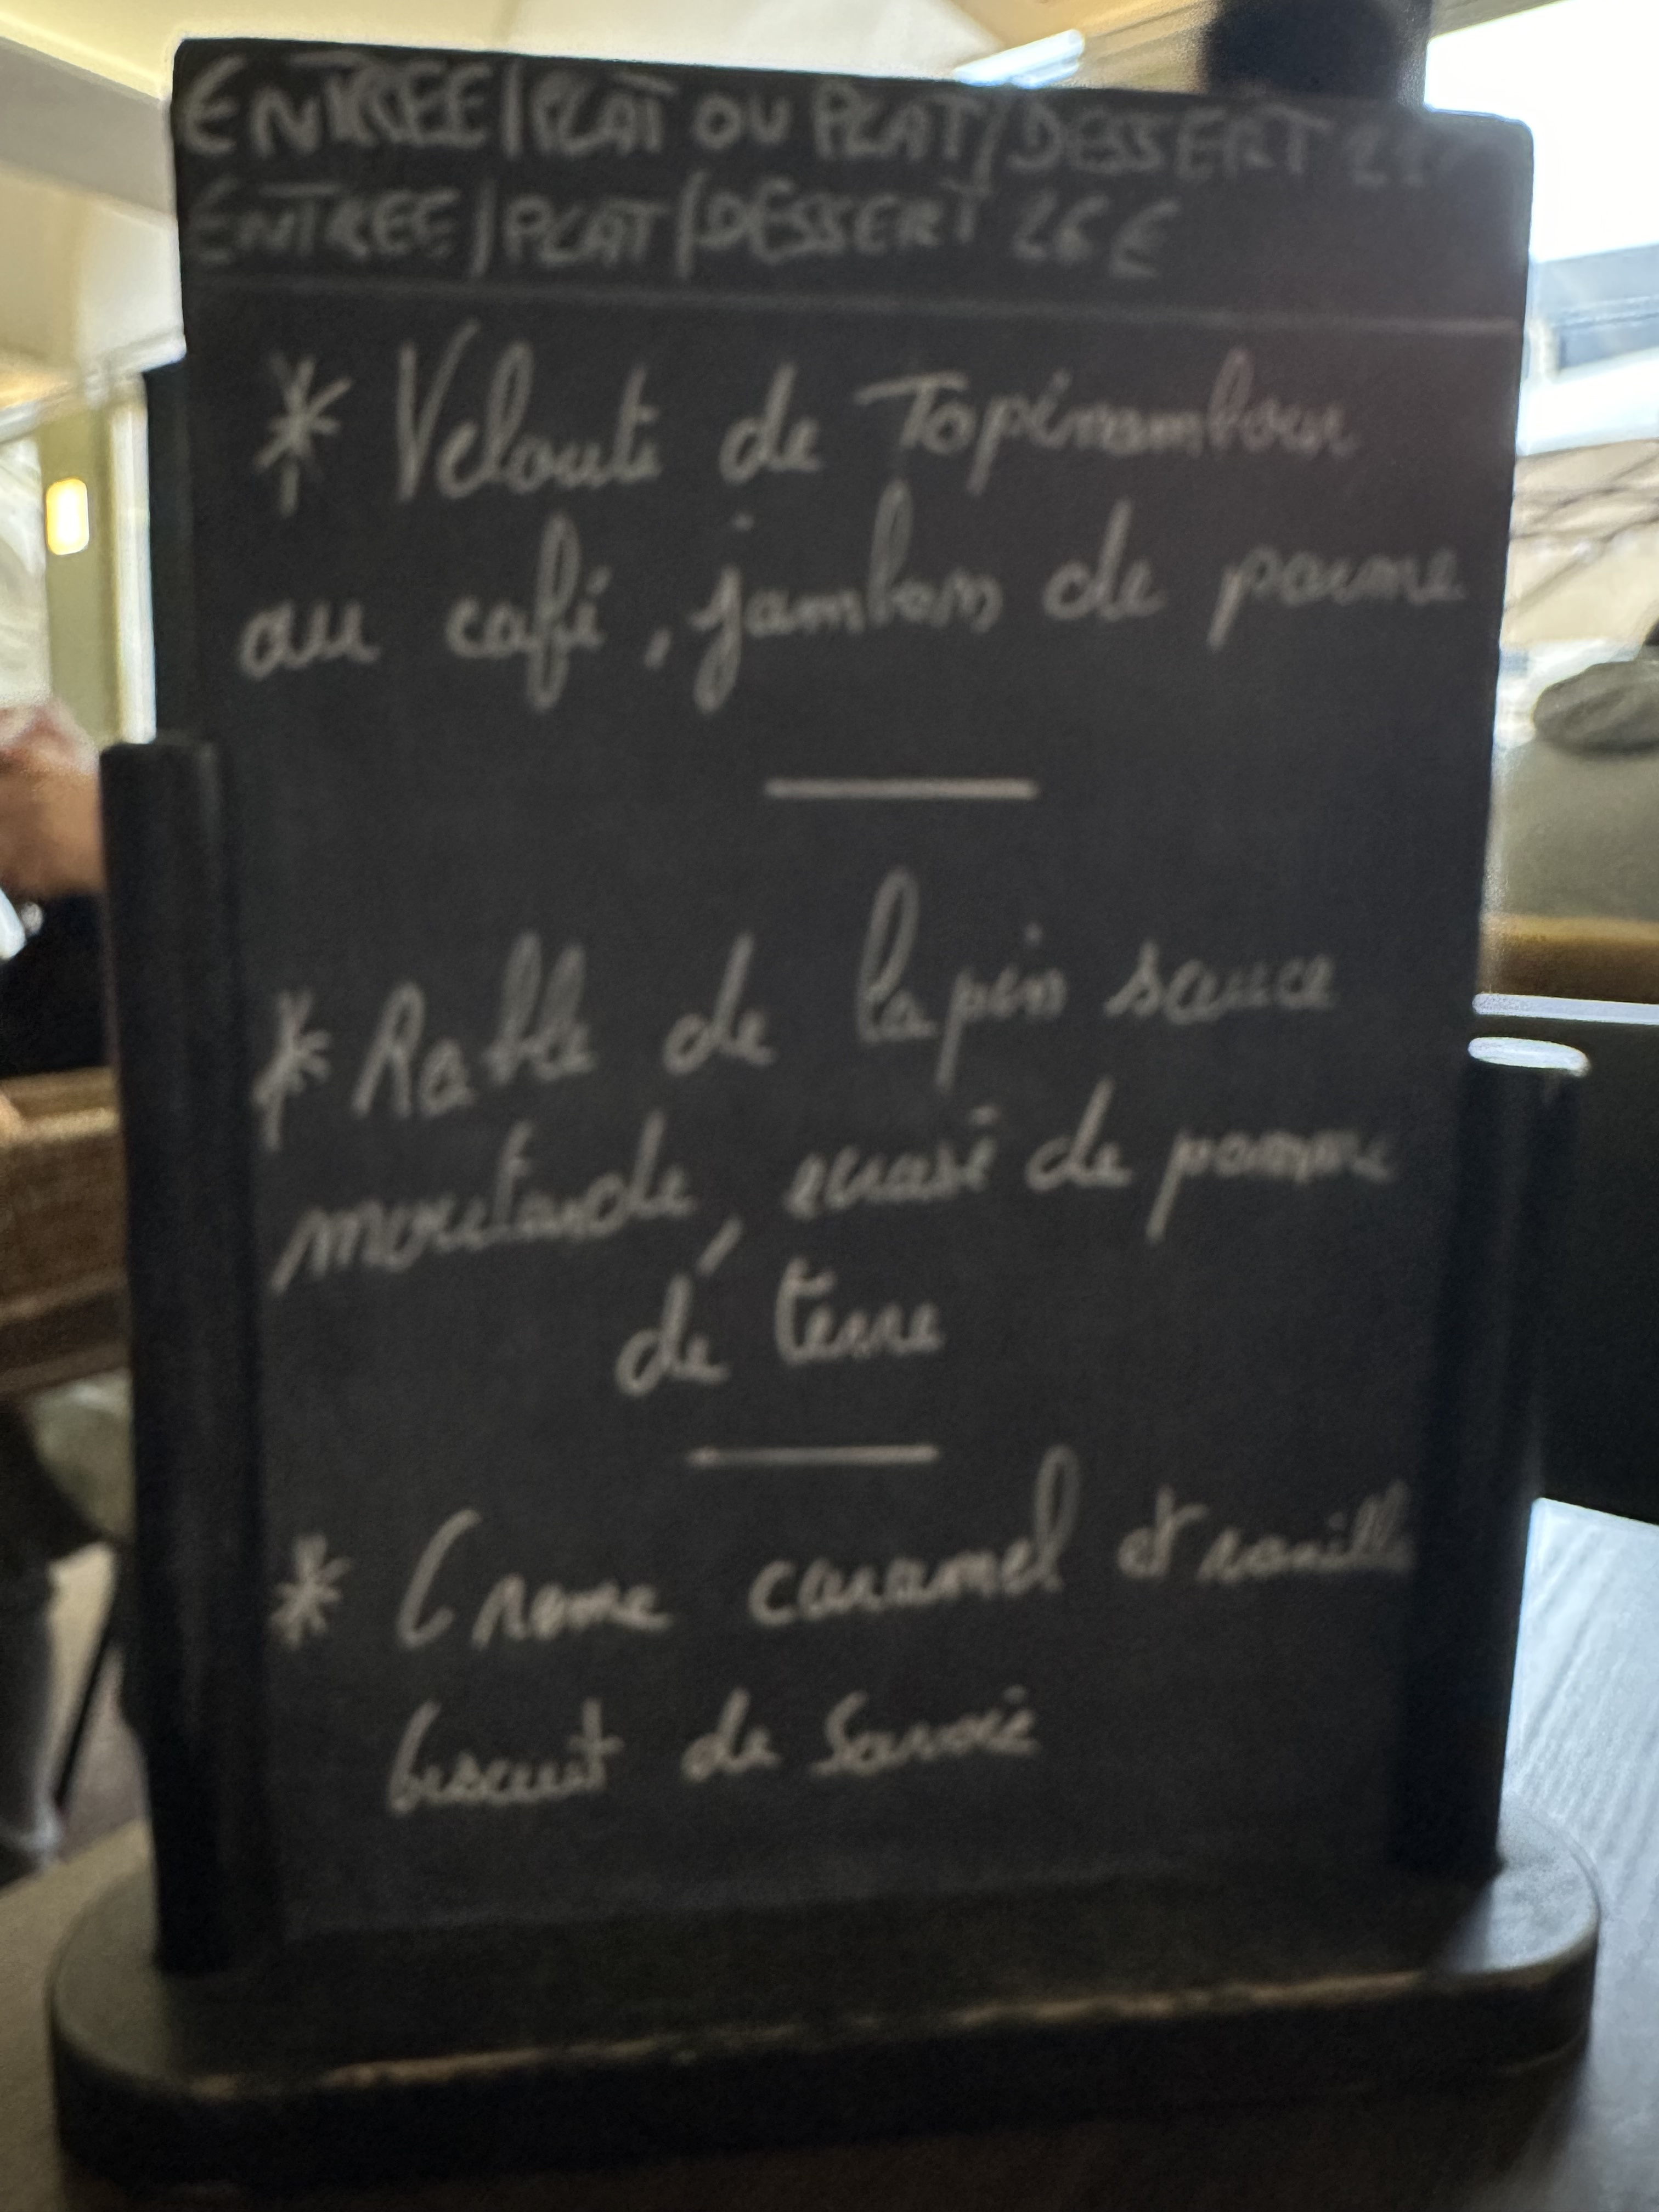 ENTREE/PLAT OU PLAT/DESSERT
ENTREE/PLAT/DESSERT 26€
* Velouté de Topinambour
au café, jambon de parme
* Rable de lapin sauce
moutarde, ecrasé de pomme
de terre
* Creme caramel et vanille
biscuit de Savoie